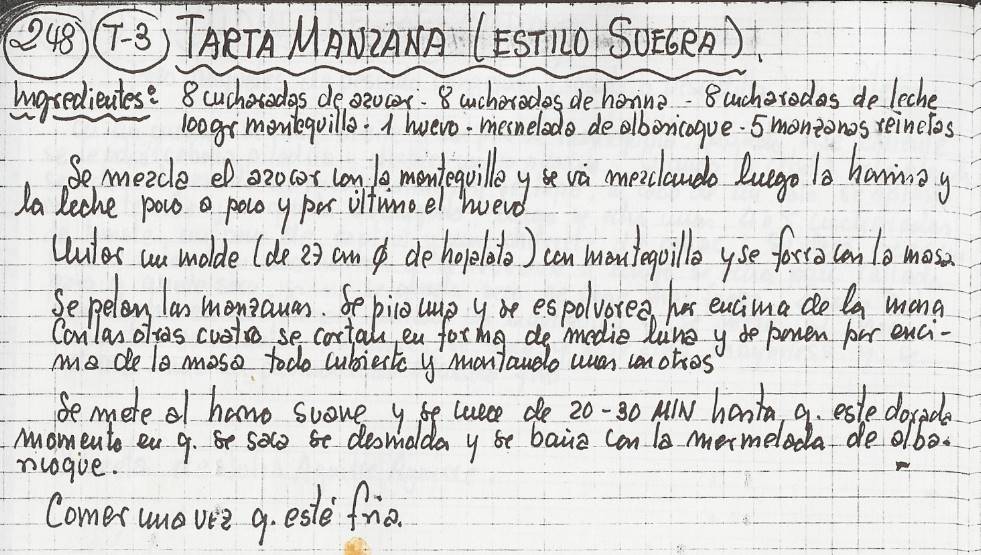 248 T-3 TARTA MANZANA (ESTILO SUEGRA).
Ingredientes: 8 cucharadas de azucar - 8 cucharadas de harina - 8 cucharadas de leche
100gr mantequilla - 1 huevo - mermelada de albaricoque - 5 manzanas reinetas
Se mezcla el azucar con la mantequilla y se va mezclando luego la harina y
la leche poco a poco y por último el huevo
Untar un molde (de 27 cm ø de hojalata) con mantequilla y se forra con la masa
Se pelan las manzanas. Se pica una y se espolvorea por encima de la masa
Con las otras cuatro se cortan en forma de media luna y se ponen por enci-
ma de la masa todo cubierto y montando unas con otras
Se mete al horno suave y se cuece de 20-30 MIN hasta q. este dorada
momento en q. se saca se desmolda y se baña con la mermelada de alba-
ricoque.
Comer una vez q. esté fría.